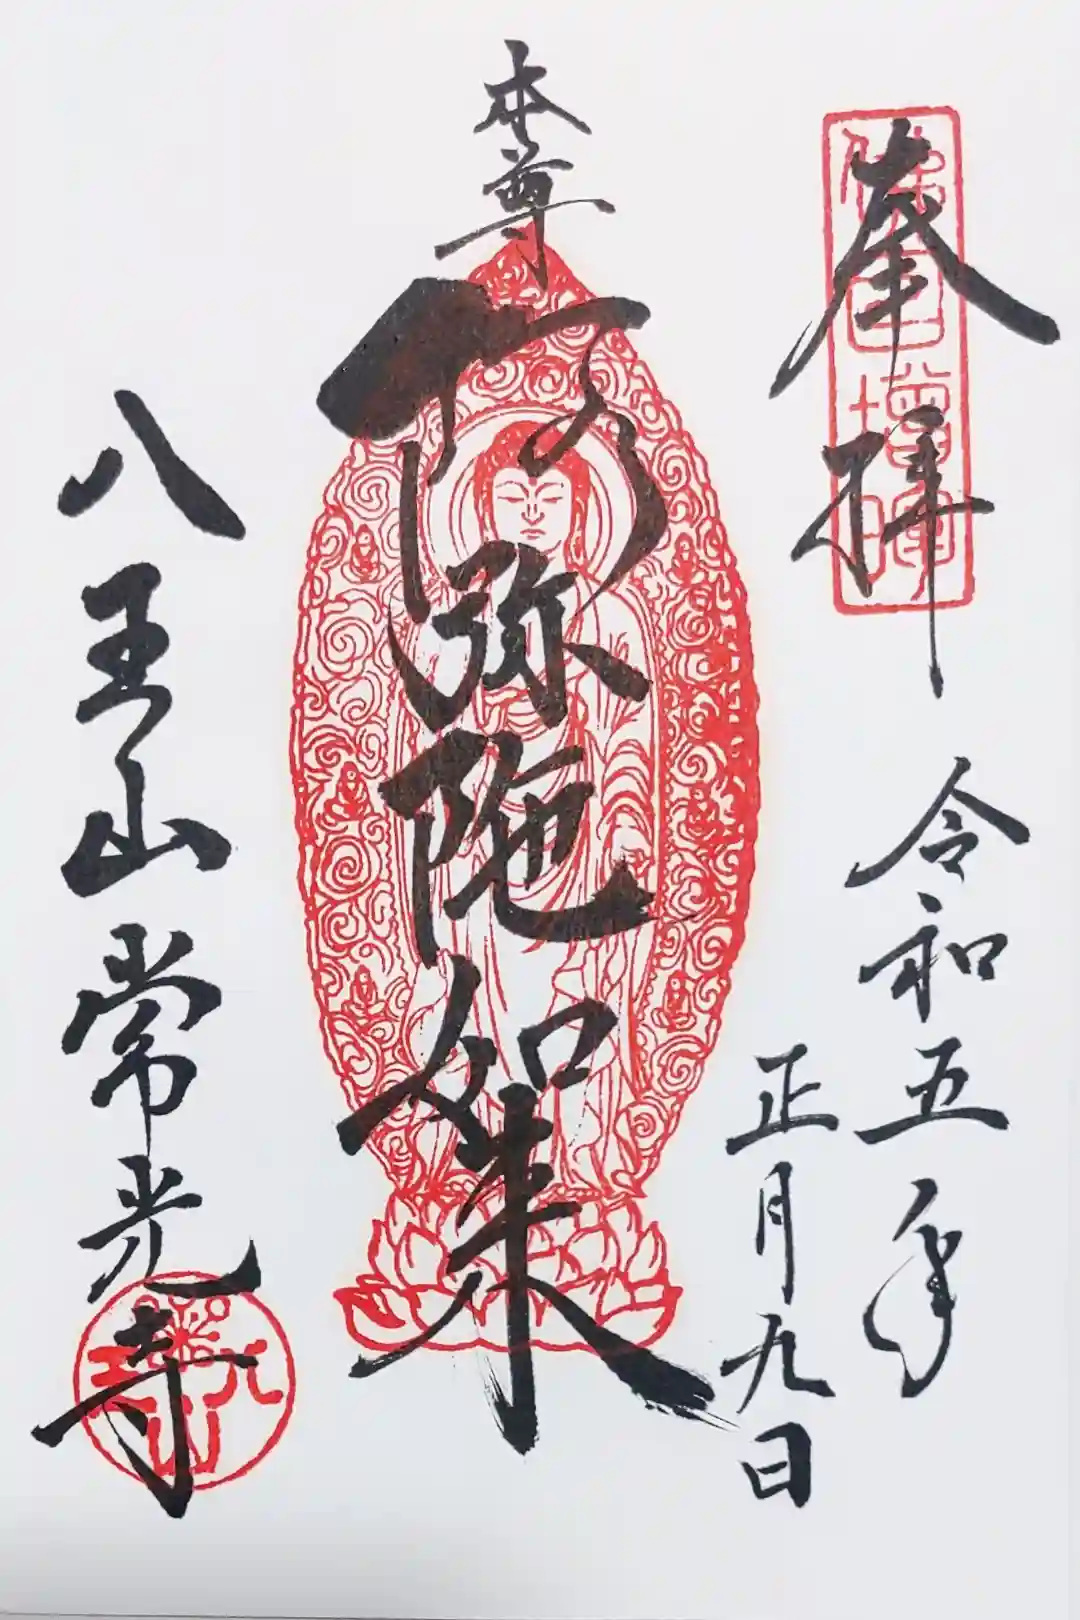 奉拝
令和五年
正月九日
本尊
阿弥陀如来
八王山常光寺
佛日増輝